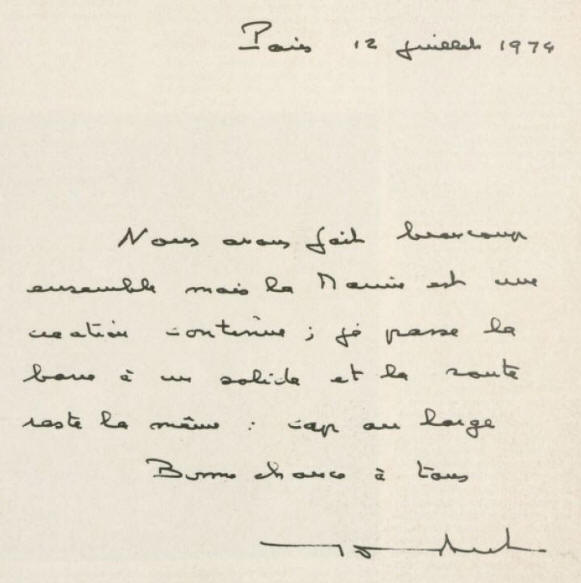 Paris 12 juillet 1974
Nous avons fait beaucoup
ensemble mais la Marine est une
création continue ; je passe la
barre à un solide et la route
reste la même : cap au large
Bonne chance à tous